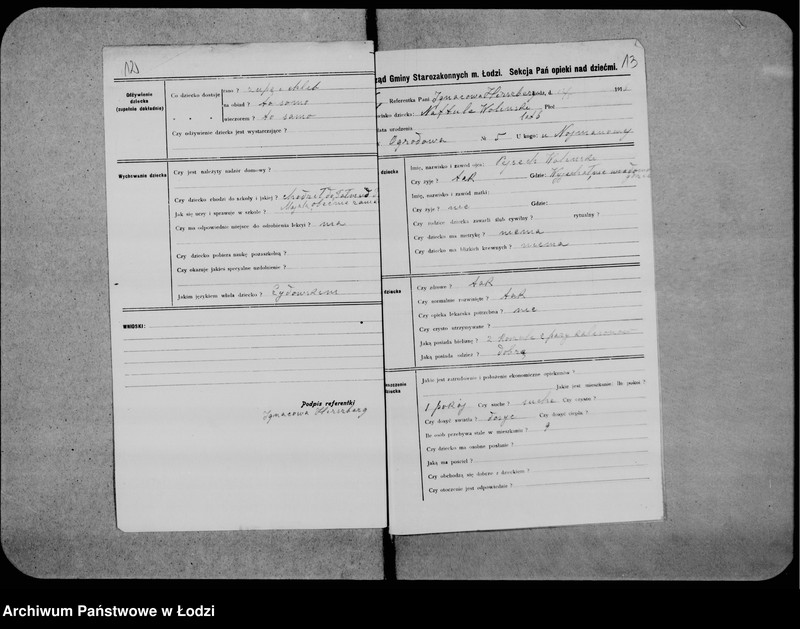 12
Odżywienie dziecka (zupełnie dokładnie)
Co dziecko dostaje
rano ? zupę i chleb
na obiad ? to samo
wieczorem ? to samo
Czy odżywienie dziecka jest wystarczające ?
Wychowanie dziecka
Czy jest należyty nadzór domowy ?
Czy dziecko chodzi do szkoły i jakiej ?
Jak się uczy i sprawuje w szkole ?
Czy ma odpowiednie miejsce do odrobienia lekcji ? ma
Czy dziecko pobiera naukę pozaszkolną ?
Czy okazuje jakieś specyalne uzdolnienie ?
Jakim językiem włada dziecko ? żydowskim
WNIOSKI:
Podpis referentki
Ignacowa Hirszberg
13
ząd Gminy Starozakonnych m. Łodzi. Sekcja Pań opieki nad dziećmi.
Referentka Pani Ignacowa Hirszberg Łódź, d. 191
Naftula Woliński Płeć
data urodzenia
Ogrodowa № 5 U kogo: u Najmanowej
dziecka
Imię, nazwisko i zawód ojca: Woliński
Czy żyje ? tak Gdzie:
Imię, nazwisko i zawód matki:
Czy żyje ? nie Gdzie:
Czy rodzice dziecka zawarli ślub cywilny ? rytualny ?
Czy dziecko ma metrykę ? niema
Czy dziecko ma bliskich krewnych ? niema
dziecka
Czy zdrowe ? tak
Czy normalnie rozwinięte ? tak
Czy opieka lekarska potrzebna ? nie
Czy czysto utrzymywane ?
Jaką posiada bieliznę ? 2 koszule 2 pary kalesonów
Jaką posiada odzież ? dobrą
Jakie jest zatrudnienie i położenie ekonomiczne opiekunów ?
Jakie jest mieszkanie: Ile pokoi ?
1 pokój Czy suche ? suche Czy czyste ?
Czy dosyć światła ? dosyć Czy dosyć ciepła ?
Ile osób przebywa stale w mieszkaniu ?
Czy dziecko ma osobne posłanie ?
Jaką ma pościel ?
Czy obchodzą się dobrze z dzieckiem ?
Czy otoczenie jest odpowiednie ?
Archiwum Państwowe w Łodzi